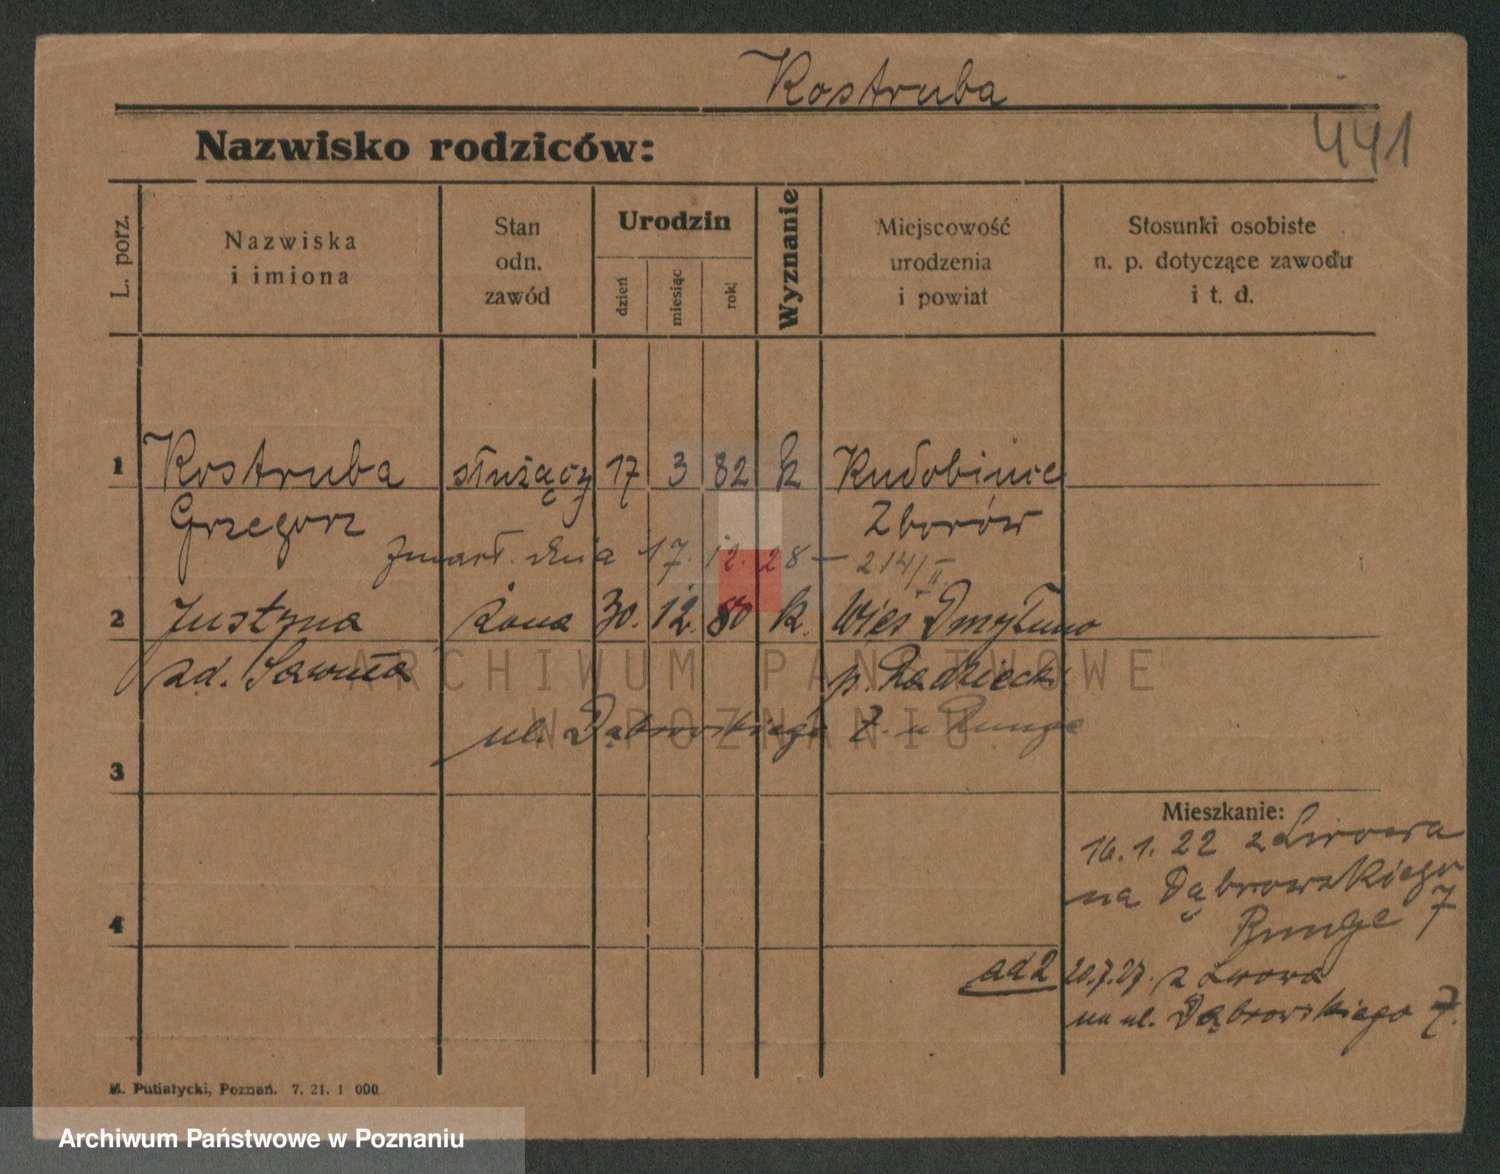 Kostruba
Nazwisko rodziców:
441
L. porz.
Nazwiska
i imiona
Stan
odn.
zawód
Urodzin
dzień
miesiąc
rok
Wyznanie
Miejscowość
urodzenia
i powiat
Stosunki osobiste
n. p. dotyczące zawodu
i t. d.
1 Kostruba służący 17 3 82 k Kudobince
Grzegorz Zborów
zmarł dnia 17. 12. 28 — 214/II.
2 Justyna żona 30. 12. 80 k. Wieś
zd. p.
ul. Dąbrowskiego 7. u Runge
3
Mieszkanie:
16.1.22 z Lwowa
na Dąbrowskiego
Runge 7
4
ad 2 20.7.27. z Lwowa
na ul. Dąbrowskiego 7.
M. Putiatycki, Poznań. 7. 21. 1 000
ARCHIWUM PAŃSTWOWE
W POZNANIU
Archiwum Państwowe w Poznaniu